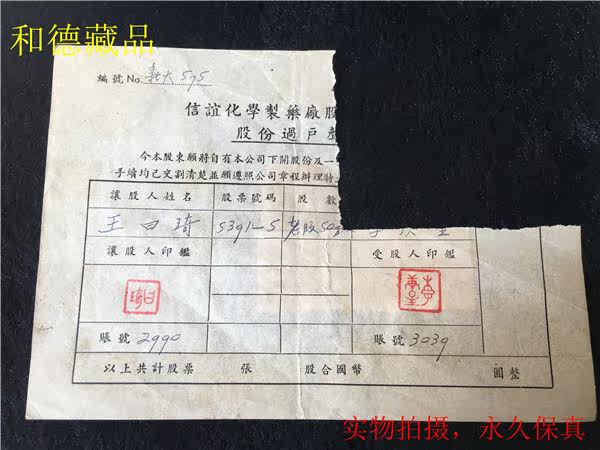 和德藏品
編號No. 新大575
信誼化學製藥廠股
股份過戶
今本股東願將自有本公司下開股份及一
手續均已交割清楚並願遵照公司章程辦理特
讓股人姓名 股票號碼 股數
王曰琦 5391-5 老股50
讓股人印鑑 受股人印鑑
賬號2990 賬號3039
以上共計股票 張 股合國幣 圓整
实物拍摄，永久保真